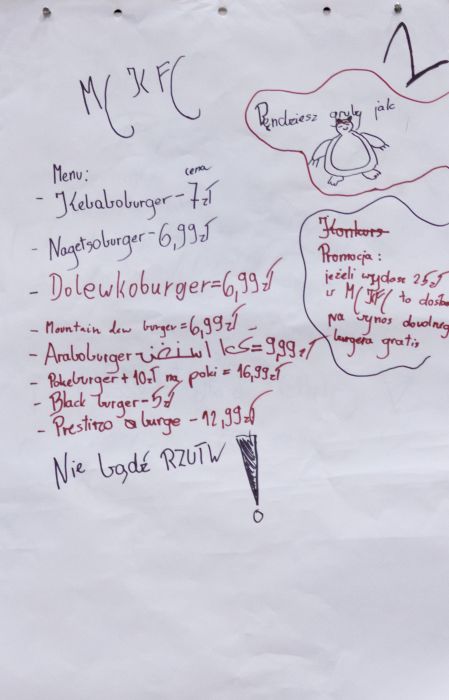 MC KFC
2
Pęndziesz gruby jak
Menu:
cena
- Kebaboburger - 7zł
- Nagetsoburger - 6,99zł
- Dolewkoburger = 6,99zł
- Mountain dew burger = 6,99zł
- Araboburger = 9,99zł
- Pokeburger + 10zł na poki = 16,99zł
- Black burger - 5zł
- Prestizo burge - 12,99zł
Nie bądź RZUŁW !
Konkurs
Promocja:
jeżeli wydasz 25zł
w MC KFC to
na wynos
burgera gratis